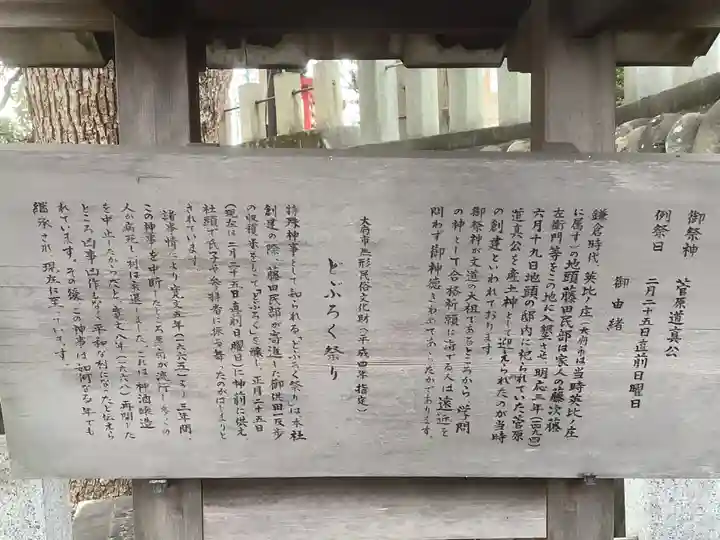 御祭神　菅原道真公
例祭日　二月二十五日直前日曜日
御由緒
鎌倉時代、英比ノ庄（大府市は当時英比ノ庄
に属す）の地頭藤田民部は家人の藤次藤
左衛門等をこの地に入墾させ、明応三年（一四九四）
六月十九日地頭の邸内に祀られていた菅原
道真公を産土神として迎えられたのが当時
の創建といわれております。
御祭神が文道の大祖であるところから、学問
の神として合格祈願に詣でる人は遠近を
問わず御神徳きわめてあらたかであります。
大府市無形民俗文化財（平成四年指定）
どぶろく祭り
特殊神事として知られる「どぶろく祭り」は本社
創建の際、藤田民部が寄進した御供田一反歩
の収穫米をもって「どぶろく」を醸し、正月二十五日
（現在は二月二十五日直前日曜日）に神前に供え
社頭で氏子や参拝者に振る舞ったのがはじまりと
されています。
諸事情により寛文五年（一六六五）より三年間、
この神事を中断したところ悪病が流行し多くの
人が病死し村は衰退しました。これは神酒醸造
を中止したからだと、寛文八年（一六六八）再開した
ところ凶事凶作もなく平和な村になったと伝えら
れています。その後、この神事は如何なる年でも
継承され、現在に至っています。